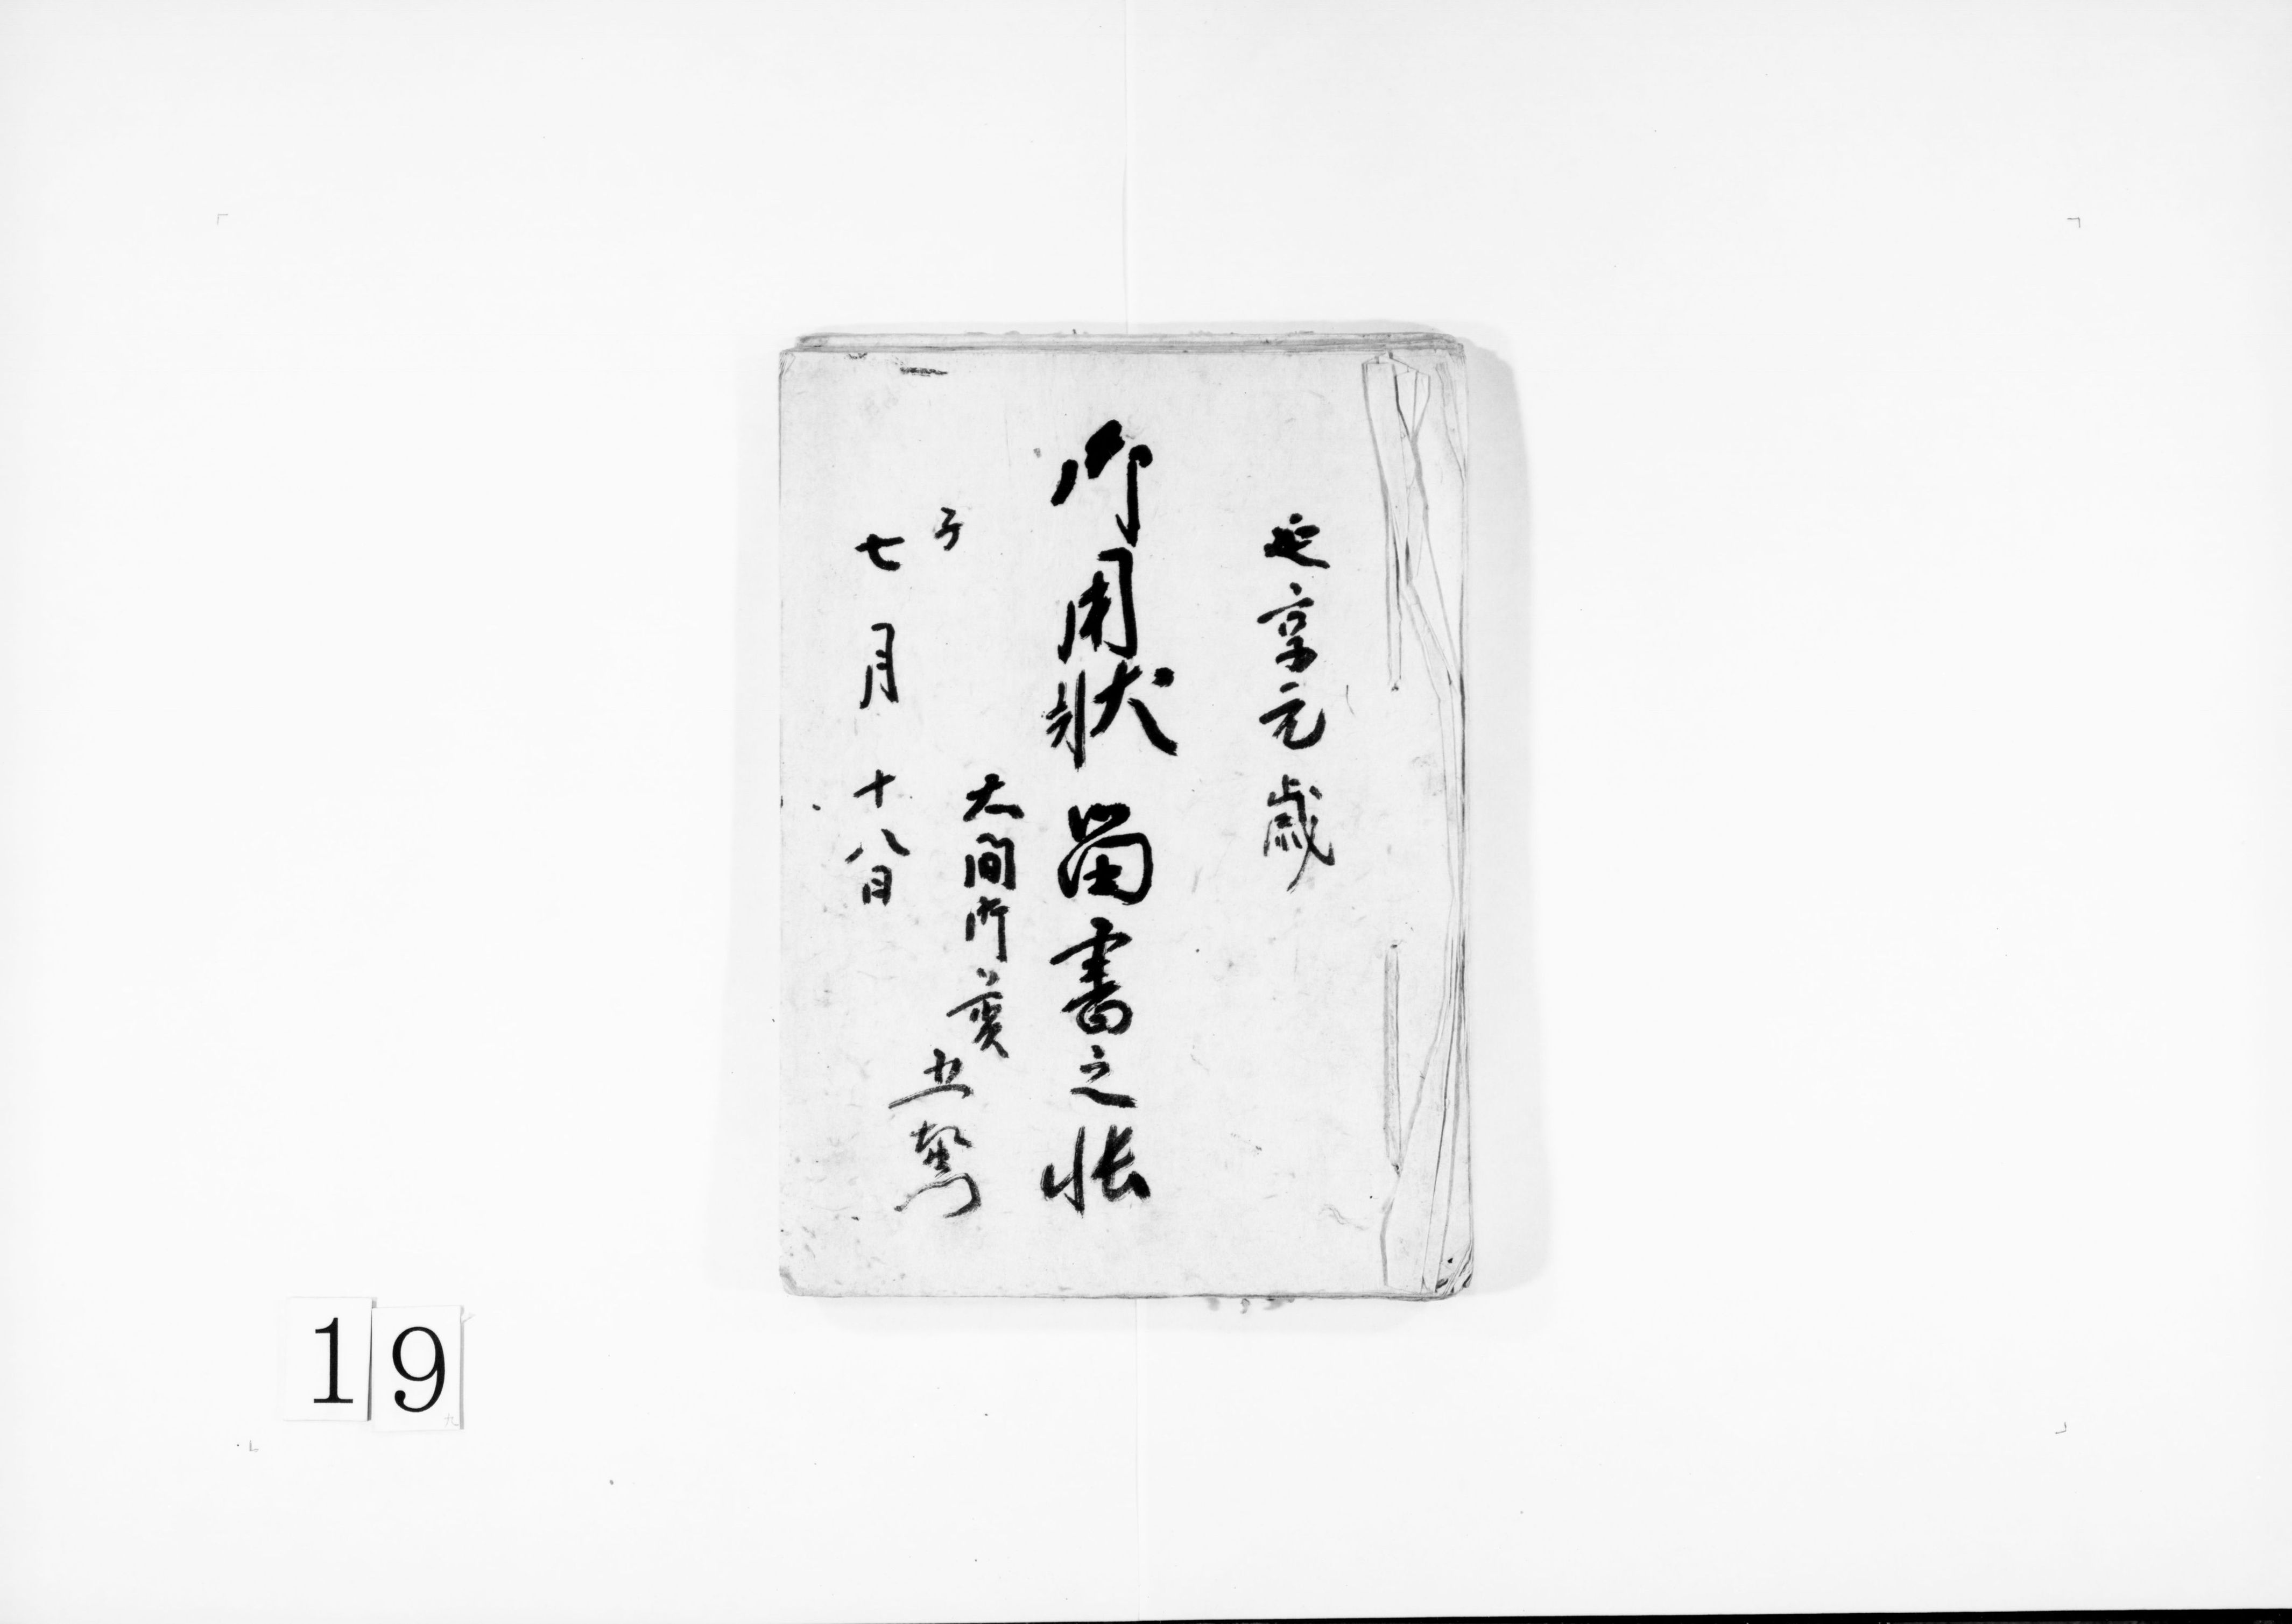 延享元歳
御用状留書之帳
大間所
子
七月十八日
19